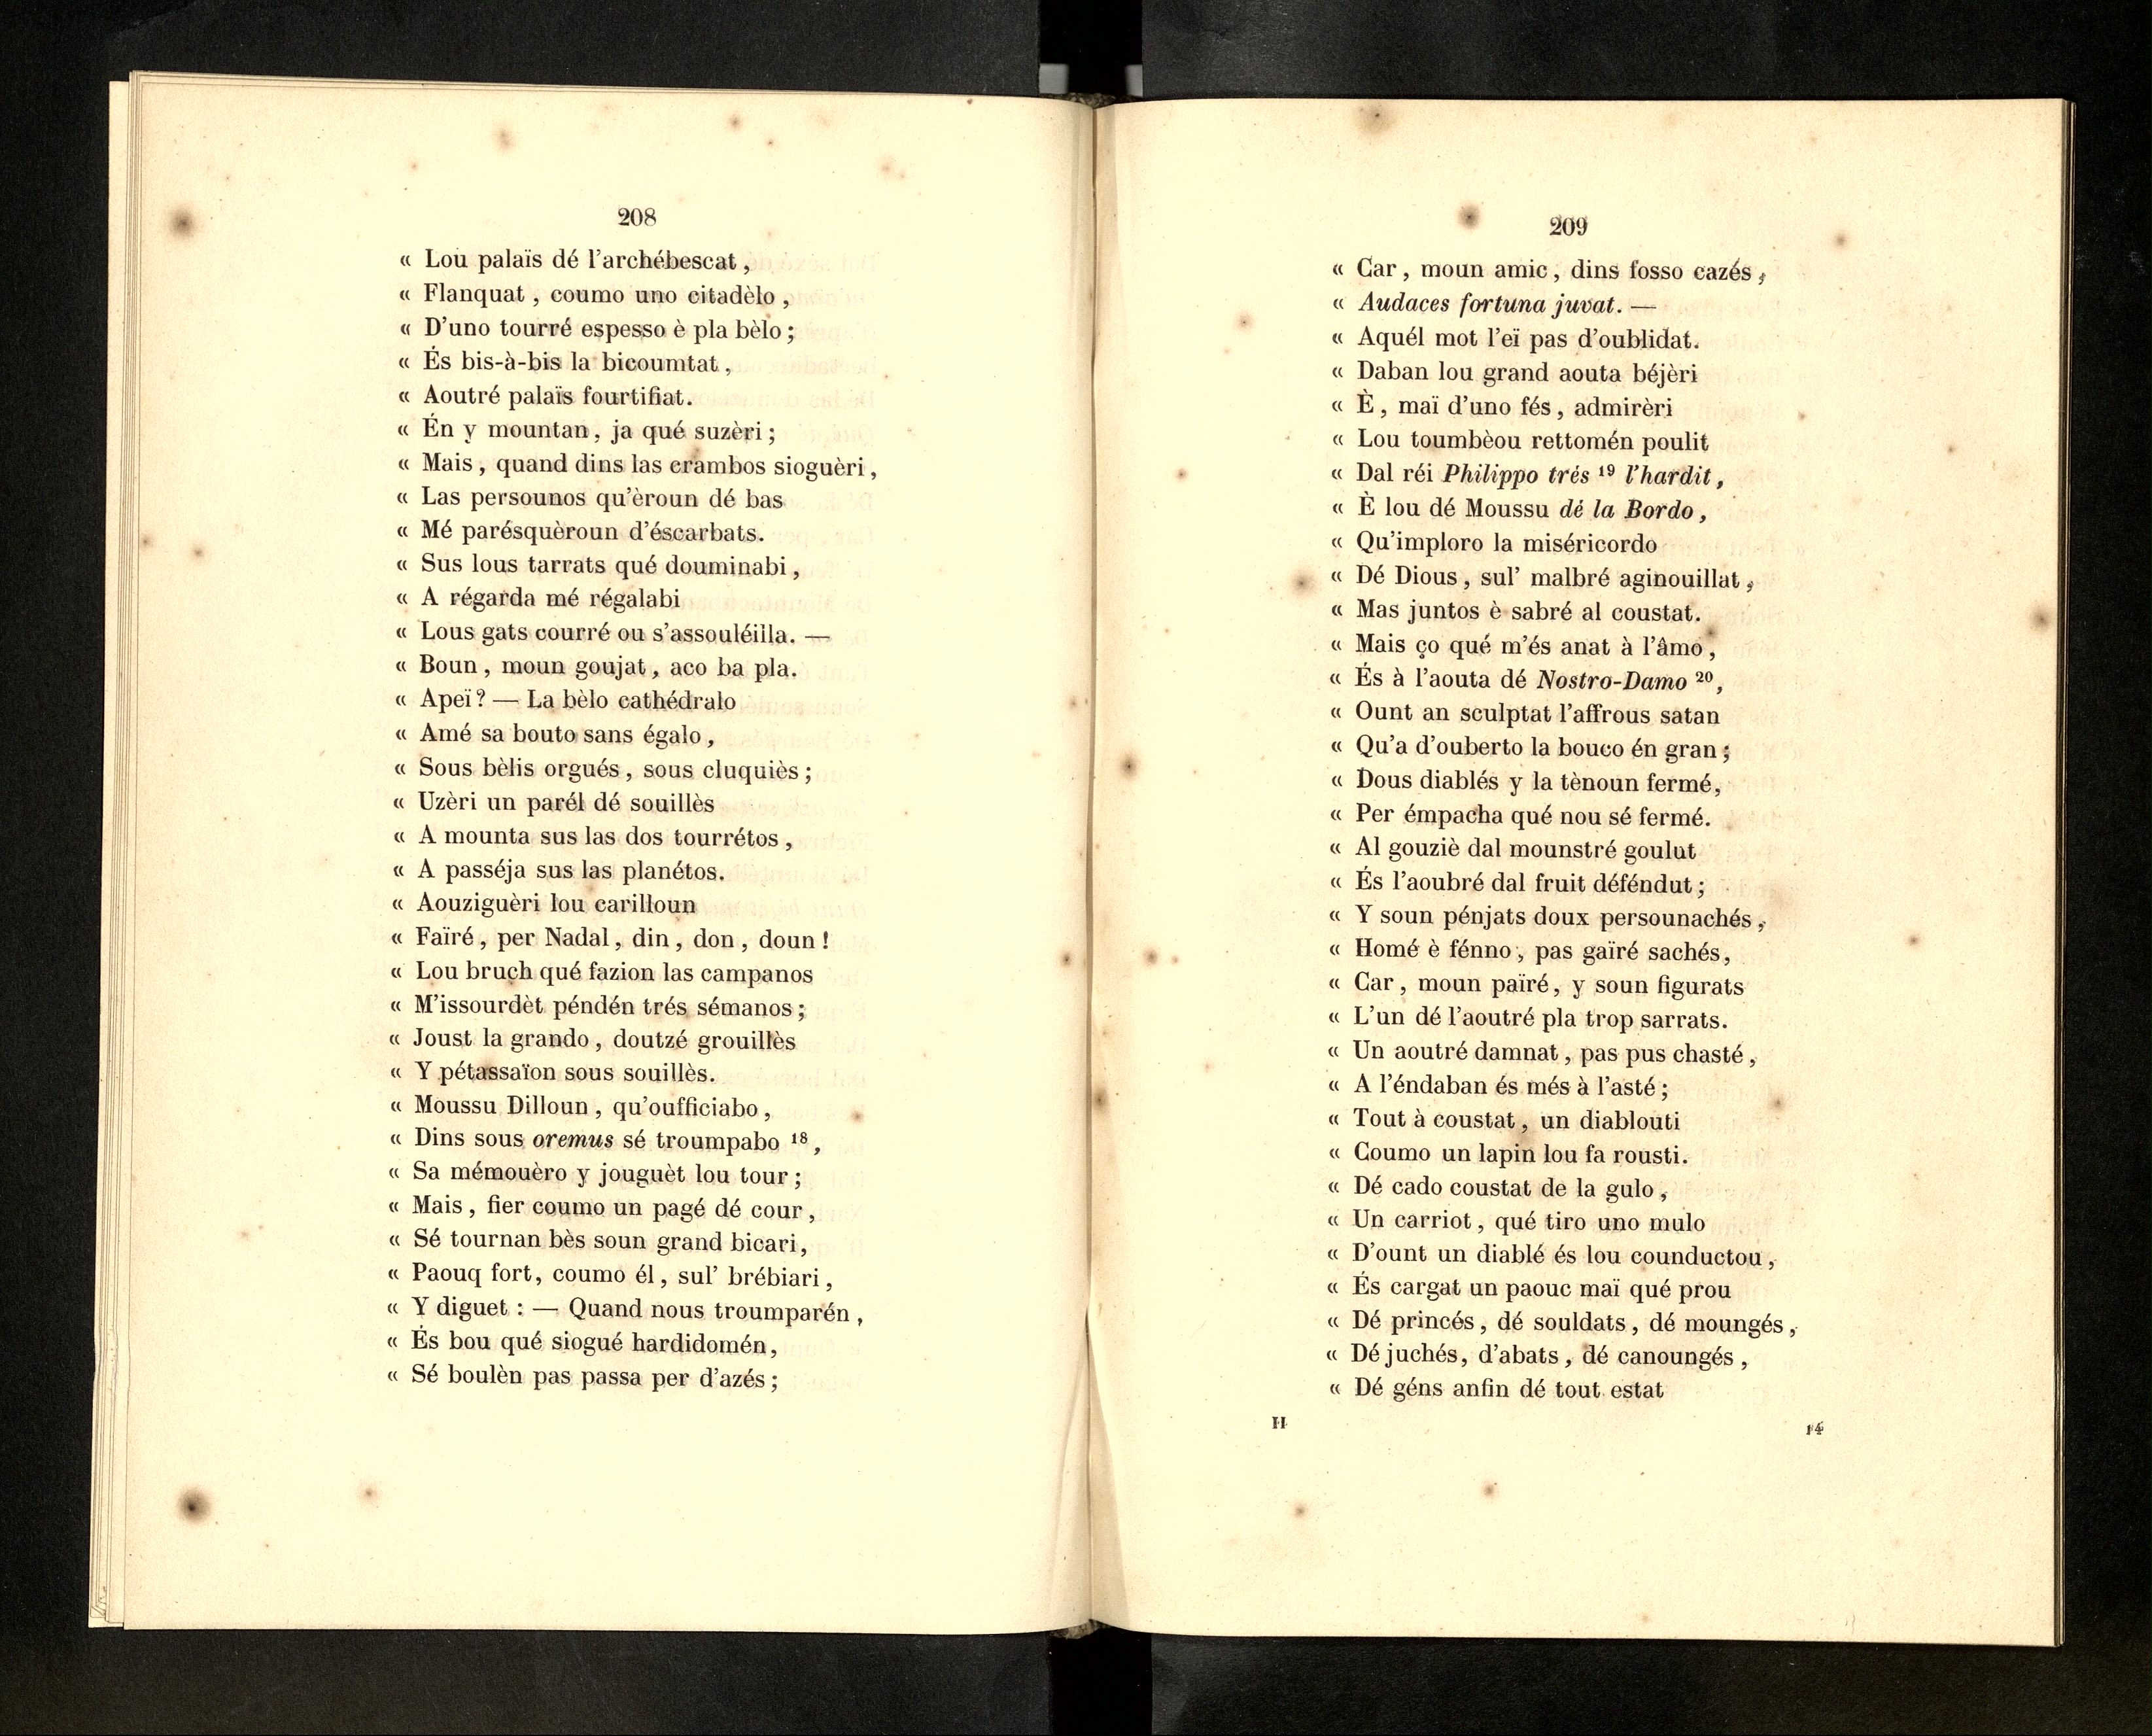 208
« Lou palaïs dé l'archébescat ,
« Flanquat , coumo uno citadèlo ,
« D'uno tourré espesso è pla bèlo ;
« És bis-à-bis la bicoumtat ,
« Aoutré palaïs fourtifiat.
« Én y mountan , ja qué suzèri ;
« Mais , quand dins las crambos sioguèri ,
« Las persounos qu'èroun dé bas
« Mé parésquèroun d'éscarbats.
« Sus lous tarrats qué douminabi ,
« A régarda mé régalabi
« Lous gats courré ou s'assouléilla. —
« Boun , moun goujat , aco ba pla.
« Apeï ? — La bèlo cathédralo
« Amé sa bouto sans égalo ,
« Sous bèlis orgués , sous cluquiès ;
« Uzèri un parél dé souillès
« A mounta sus las dos tourrétos ,
« A passéja sus las planétos.
« Aouziguèri lou carilloun
« Faïré , per Nadal , din , don , doun !
« Lou bruch qué fazion las campanos
« M'issourdèt péndén trés sémanos ;
« Joust la grando , doutzé grouillès
« Y pétassaïon sous souillès.
« Moussu Dilloun , qu'oufficiabo ,
« Dins sous oremus sé troumpabo 18 ,
« Sa mémouèro y jouguèt lou tour ;
« Mais , fier coumo un pagé dé cour ,
« Sé tournan bès soun grand bicari ,
« Paouq fort , coumo él , sul' brébiari ,
« Y diguet : — Quand nous troumparén ,
« És bou qué siogué hardidomén ,
« Sé boulèn pas passa per d'azés ;
209
« Car , moun amic , dins fosso cazés ,
« Audaces fortuna juvat. —
« Aquél mot l'eï pas d'oublidat.
« Daban lou grand aouta béjèri
« È , maï d'uno fés , admirèri
« Lou toumbèou rettomén poulit
« Dal réi Philippo trés 19 l'hardit ,
« È lou dé Moussu dé la Bordo ,
« Qu'imploro la miséricordo
« Dé Dious , sul' malbré aginouillat ,
« Mas juntos è sabré al coustat.
« Mais ço qué m'és anat à l'âmo ,
« És à l'aouta dé Nostro-Damo 20 ,
« Ount an sculptat l'affrous satan
« Qu'a d'ouberto la bouco én gran ;
« Dous diablés y la tènoun fermé ,
« Per émpacha qué nou sé fermé.
« Al gouziè dal mounstré goulut
« És l'aoubré dal fruit déféndut ;
« Y soun pénjats doux persounachés ,
« Homé è fénno , pas gaïré sachés ,
« Car , moun païré , y soun figurats
« L'un dé l'aoutré pla trop sarrats.
« Un aoutré damnat , pas pus chasté ,
« A l'éndaban és més à l'asté ;
« Tout à coustat , un diablouti
« Coumo un lapin lou fa rousti.
« Dé cado coustat de la gulo ,
« Un carriot , qué tiro uno mulo
« D'ount un diablé és lou counductou ,
« És cargat un paouc maï qué prou
« Dé princés , dé souldats , dé moungés ,
« Dé juchés , d'abats , dé canoungés ,
« Dé géns anfin dé tout estat
II 14